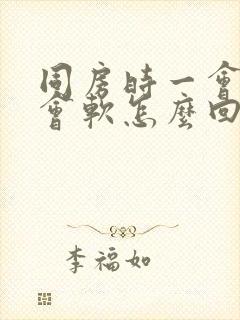 同房時一會
會軟怎麼回
李福如